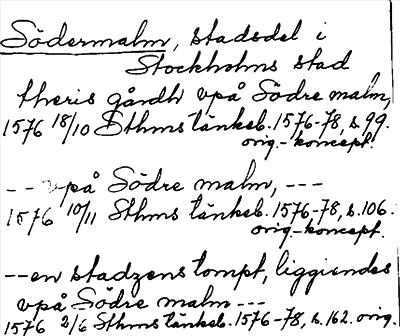 Södermalm, stadsdel i
Stockholms stad
theris gårdh vpå Södre malm,
1576 18/10 Sthms tänkeb. 1576-78, s. 99.
orig.-koncept.
-- vpå Södre malm, ---
1576 10/11 Sthms tänkeb. 1576-78, s. 106.
orig.-koncept.
--en stadzens tompt, liggiendes
vpå Södre malm ---
1576 2/6 Sthms tänkeb. 1576-78, s. 162. orig.